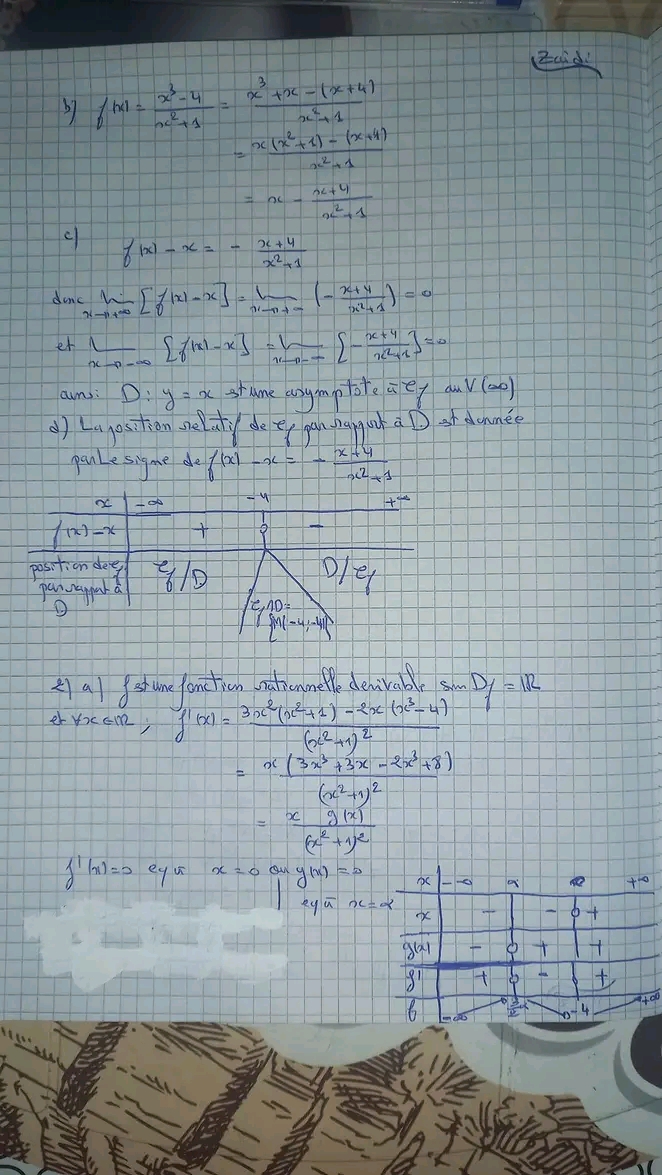 Zaidi
b) f(x) = (x³-4)/(x²+1) = (x³+x-(x+4))/(x²+1)
= (x(x²+1)-(x+4))/(x²+1)
= x - (x+4)/(x²+1)
c)
f(x)-x = - (x+4)/(x²+1)
donc lim x→+∞ [f(x)-x] = lim x→+∞ (-(x+4)/(x²+1)) = 0
et lim x→-∞ [f(x)-x] = lim x→-∞ [-(x+4)/(x²+1)] = 0
ainsi D: y = x est une asymptote à ζf au V(∞)
d) La position relatif de ζf par rapport à D est donnée
par le signe de f(x)-x = - (x+4)/(x²+1)
x -∞ -4 +∞
f(x)-x + 0 -
position de ζf ζf/D D/ζf
par rapport à
D ζf∩D=
{M(-4,-4)}
2) a) f est une fonction rationnelle derivable sur Df = IR
et ∀x∈IR; f'(x) = (3x²(x²+1)-2x(x³-4))/(x²+1)²
= x(3x³+3x-2x³+8)/(x²+1)²
= x g(x)/(x²+1)²
f'(x)=0 eq à x=0 ou g(x)=0
eq à x=α
x -∞ α +∞
x - - 0 +
g(x) - 0 + +
f' + 0 - 0 +
f -∞ -4 +∞